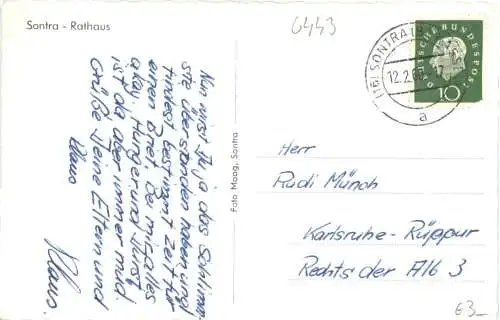 Sontra - Rathaus
6443
Nun wirst Du ja das Schlimm-
ste überstanden haben und
findest bestimmt Zeit für
einen Brief. Bei mir alles
okay. Hunger und Durst
ist da aber immer mal.
Grüße Deine Eltern und
Klaus.
Foto Maag, Sontra
(16) SONTRA
12.2.60
a
DEUTSCHE BUNDESPOST
10
Herr
Rudi Münch
Karlsruhe-Rüppur
Rechts der Alb 3
€3_